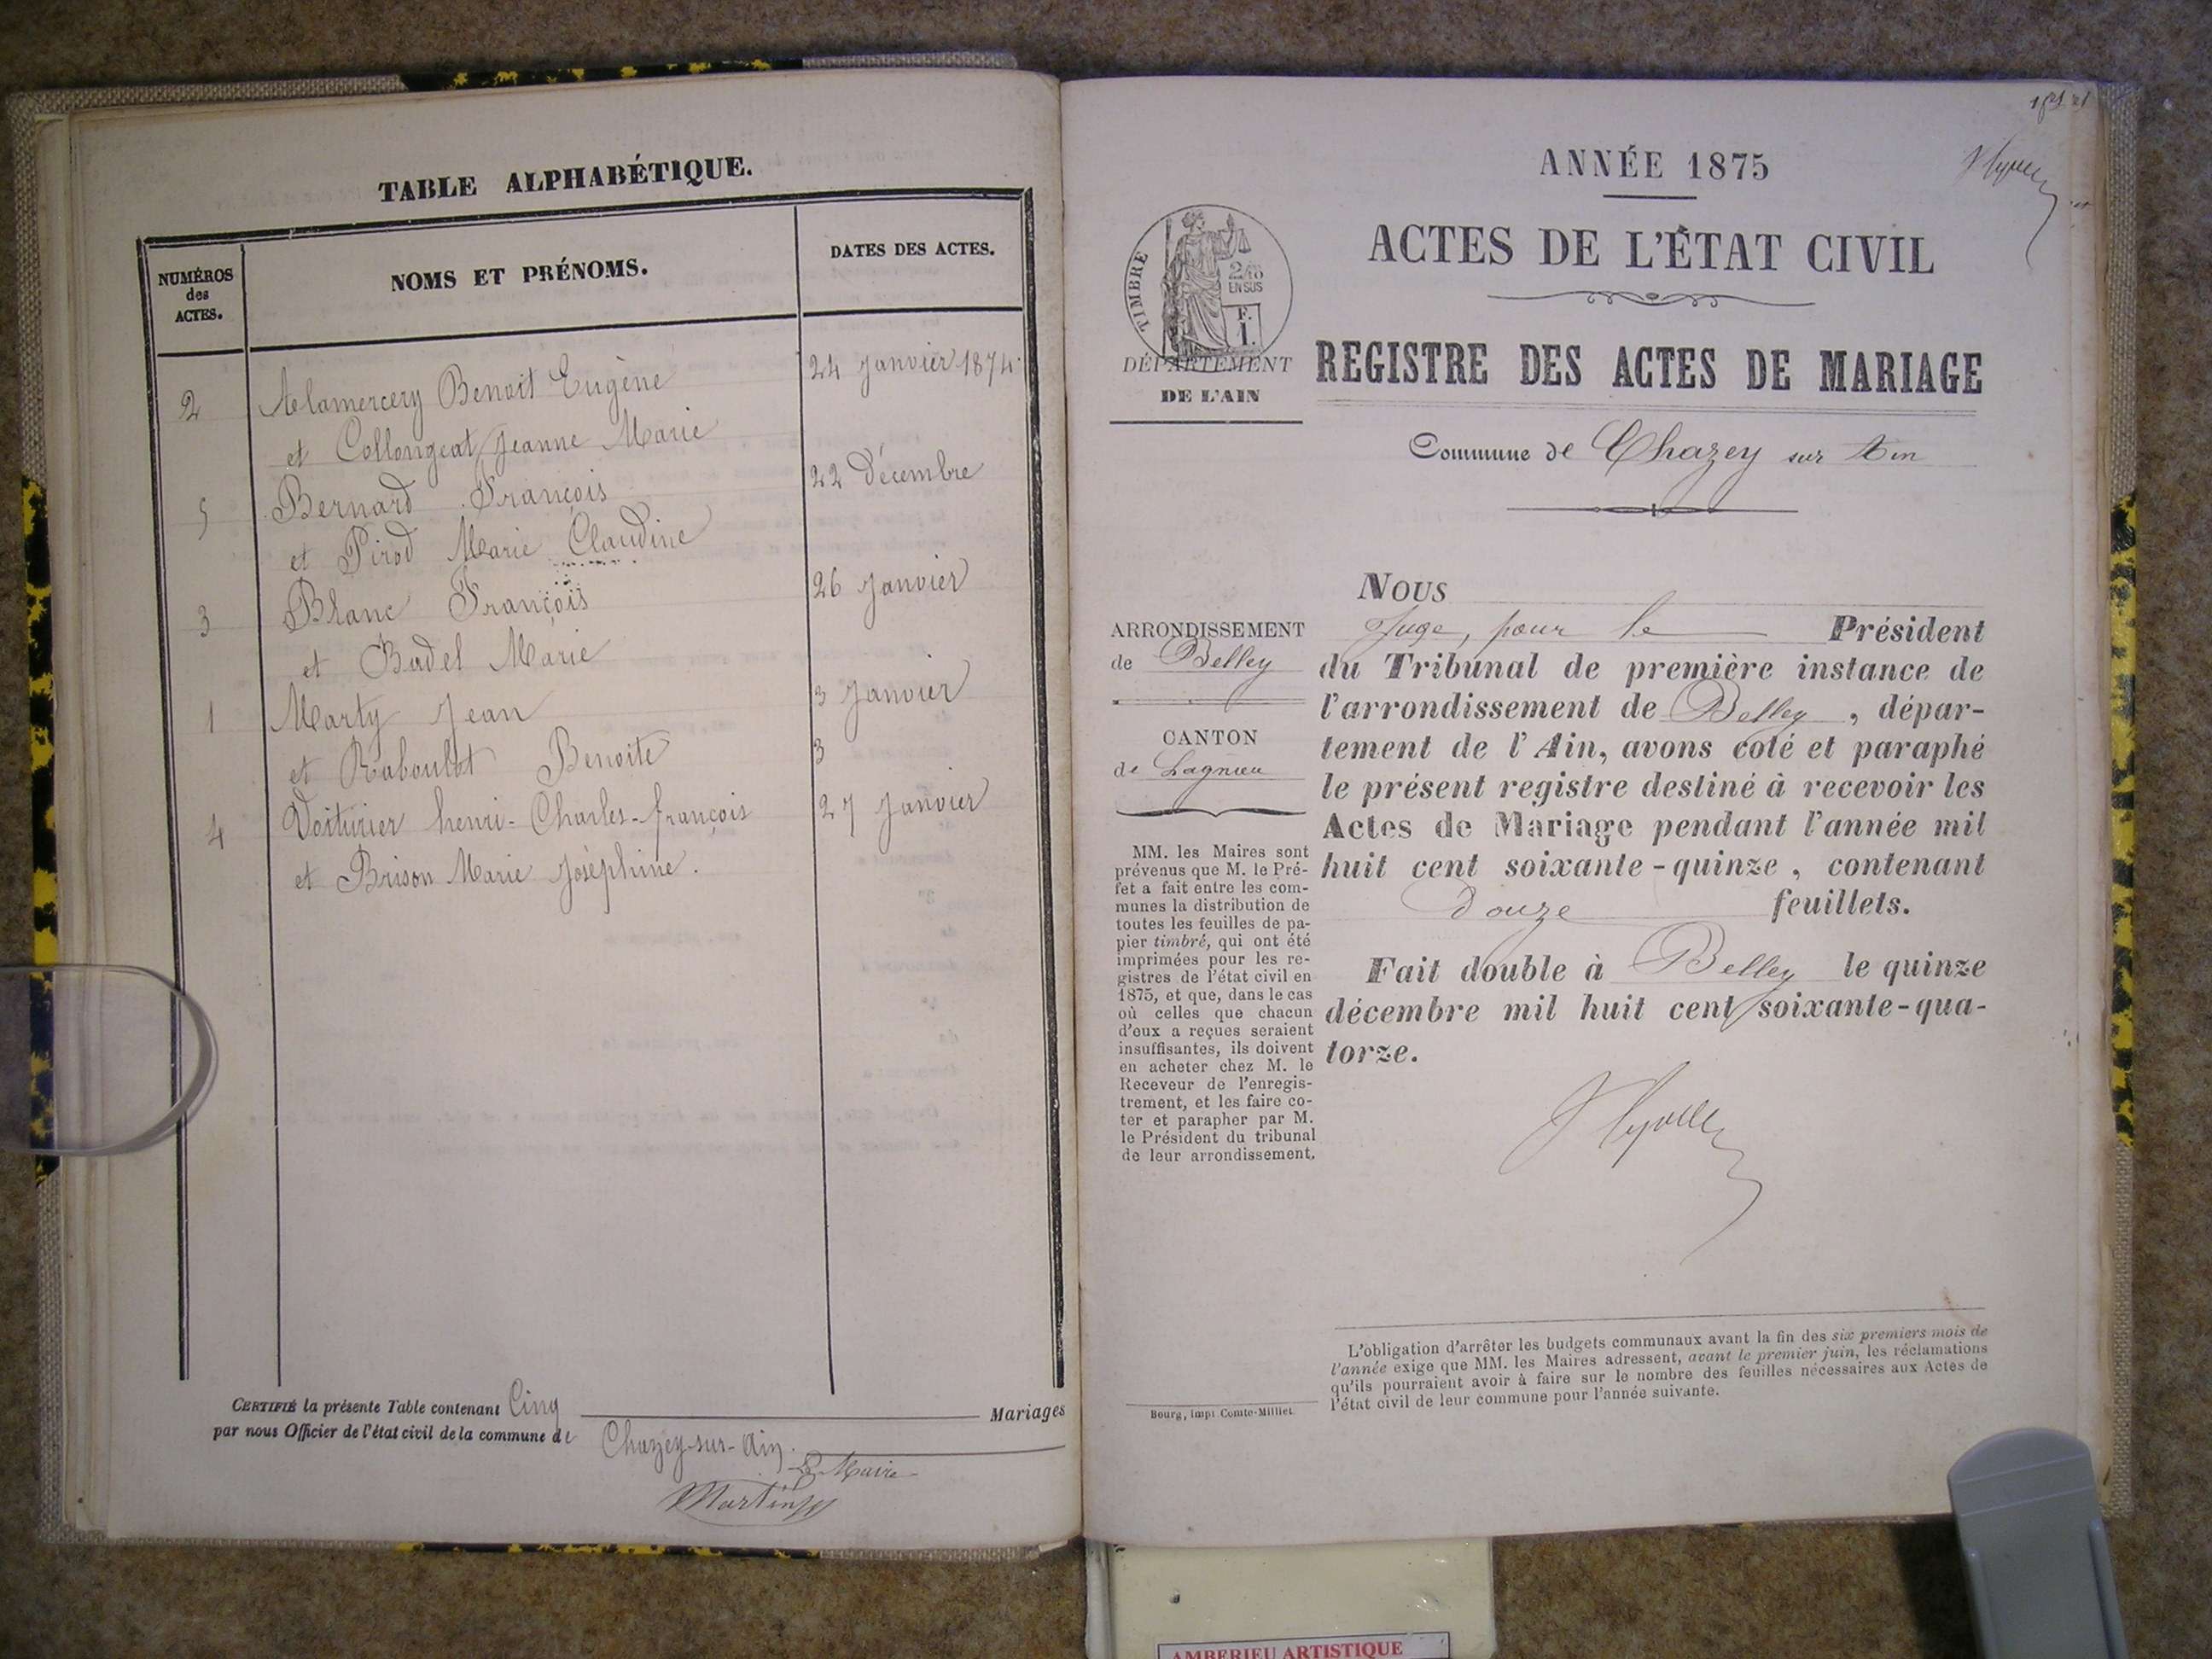 TABLE ALPHABÉTIQUE.
NUMÉROS
des
ACTES.
NOMS ET PRÉNOMS.
DATES DES ACTES.
2 Alamercery Benoit Eugène 24 Janvier 1874
et Collongeat Jeanne Marie
5 Bernard François 22 Décembre
et Pirod Marie Claudine
3 Blanc François 26 Janvier
et Badel Marie
1 Marty Jean 3 Janvier
et Raboulot Benoite 3
4 Voiturier henri-Charles-françois 27 Janvier
et Brison Marie Joséphine.
CERTIFIÉ la présente Table contenant Cinq Mariages
par nous Officier de l'état civil de la commune de Chazey-sur-Ain.
Le Maire
Martin
ANNÉE 1875
ACTES DE L'ÉTAT CIVIL
TIMBRE
2/10
EN SUS
F.
1.
DÉPARTEMENT
DE L'AIN
REGISTRE DES ACTES DE MARIAGE
Commune de Chazey sur Ain
ARRONDISSEMENT
de Belley
CANTON
de Lagnieu
MM. les Maires sont
prévenus que M. le Pré-
fet a fait entre les com-
munes la distribution de
toutes les feuilles de pa-
pier timbré, qui ont été
imprimées pour les re-
gistres de l'état civil en
1875, et que, dans le cas
où celles que chacun
d'eux a reçues seraient
insuffisantes, ils doivent
en acheter chez M. le
Receveur de l'enregis-
trement, et les faire co-
ter et parapher par M.
le Président du tribunal
de leur arrondissement.
NOUS
Juge, pour le Président
du Tribunal de première instance de
l'arrondissement de Belley, dépar-
tement de l'Ain, avons coté et paraphé
le présent registre destiné à recevoir les
Actes de Mariage pendant l'année mil
huit cent soixante-quinze, contenant
douze feuillets.
Fait double à Belley le quinze
décembre mil huit cent soixante-qua-
torze.
L'obligation d'arrêter les budgets communaux avant la fin des six premiers mois de
l'année exige que MM. les Maires adressent, avant le premier juin, les réclamations
qu'ils pourraient avoir à faire sur le nombre des feuilles nécessaires aux Actes de
l'état civil de leur commune pour l'année suivante.
Bourg, impr Comte-Milliet.
AMBERIEU ARTISTIQUE